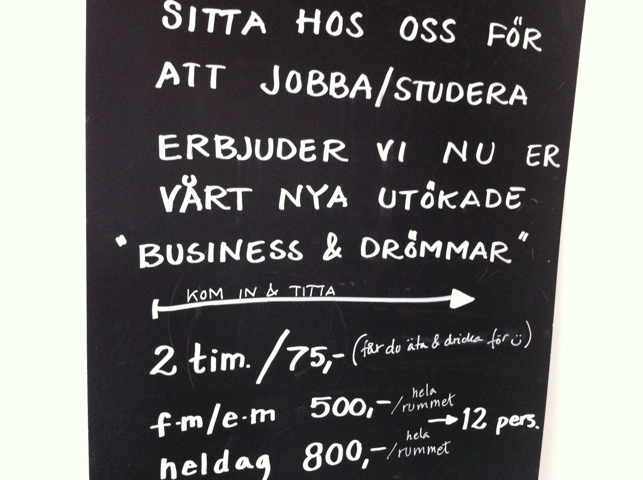 SITTA HOS OSS FÖR
ATT JOBBA/STUDERA
ERBJUDER VI NU ER
VÅRT NYA UTÖKADE
"BUSINESS & DRÖMMAR"
KOM IN & TITTA
2 tim./75,- (får du äta & dricka för ü)
f.m/e.m 500,-/hela rummet → 12 pers.
heldag 800,-/hela rummet